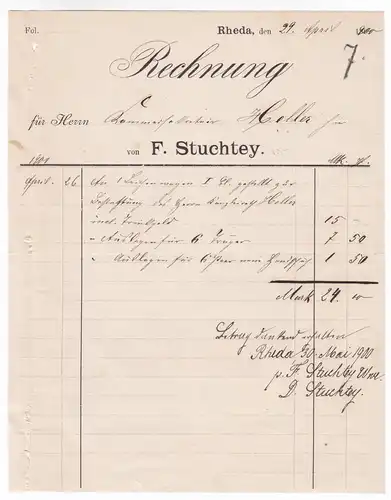 Fol.
Rheda, den 29 April 1900
7.
Rechnung
für Herrn Heller
von F. Stuchtey.
Mk. Pf.
April. 26. An 1 Leichenwagen I Kl. gestellt zur
Bestattung des Herrn Heller
incl. Trinkgeld 15 –
" Auslagen für 6 Träger 7 50
" Auslagen für 1 50
Mark 24. 00
Betrag dankend erhalten
Rheda 30. Mai 1900
p. F. Stuchtey Wwe.
D. Stuchtey.